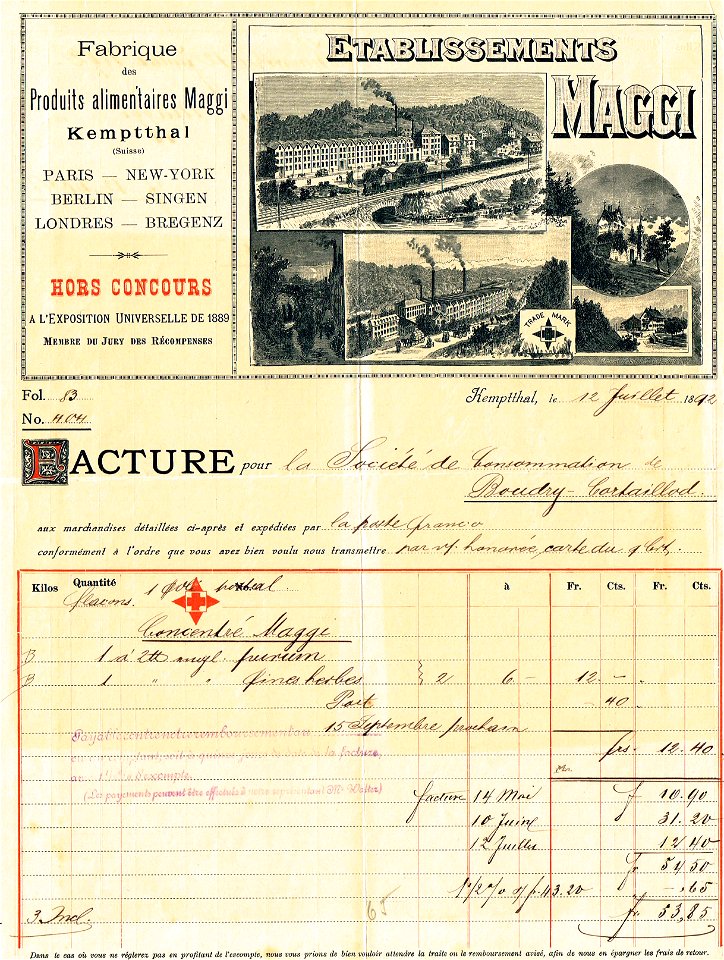 Fabrique
des
Produits alimentaires Maggi
Kemptthal
(Suisse)
PARIS — NEW-YORK
BERLIN — SINGEN
LONDRES — BREGENZ
HORS CONCOURS
A L'EXPOSITION UNIVERSELLE DE 1889
MEMBRE DU JURY DES RÉCOMPENSES
ETABLISSEMENTS
MAGGI
TRADE MARK
Fol. 83
No. 404
Kemptthal, le 12 Juillet 1892
FACTURE pour la Société de Consommation de
Boudry-Cortaillod
aux marchandises détaillées ci-après et expédiées par la poste franco
conformément à l'ordre que vous avez bien voulu nous transmettre par v/ honorée carte du
Kilos Quantité à Fr. Cts. Fr. Cts.
flacons. 1 postal.
Concentré Maggi
B 1 à 2 purum
B 1 " " fines herbes } 2 6 — 12. —
Port — 40
15 Septembre prochain
frs. 12.40
Payable entre notre remboursement
la facture,
d'escompte.
(Les payements peuvent être effectués à notre représentant Mr. Walter)
facture 14 Mai f 10.90
10 Juin 31.20
12 Juillet 12.40
fr 54.50
1 1/2 % s/f. 43.20 " — .65
3 Incl. 65 fr. 53.85
Dans le cas où vous ne règlerez pas en profitant de l'escompte, nous vous prions de bien vouloir attendre la traite ou le remboursement avisé, afin de nous en épargner les frais de retour.